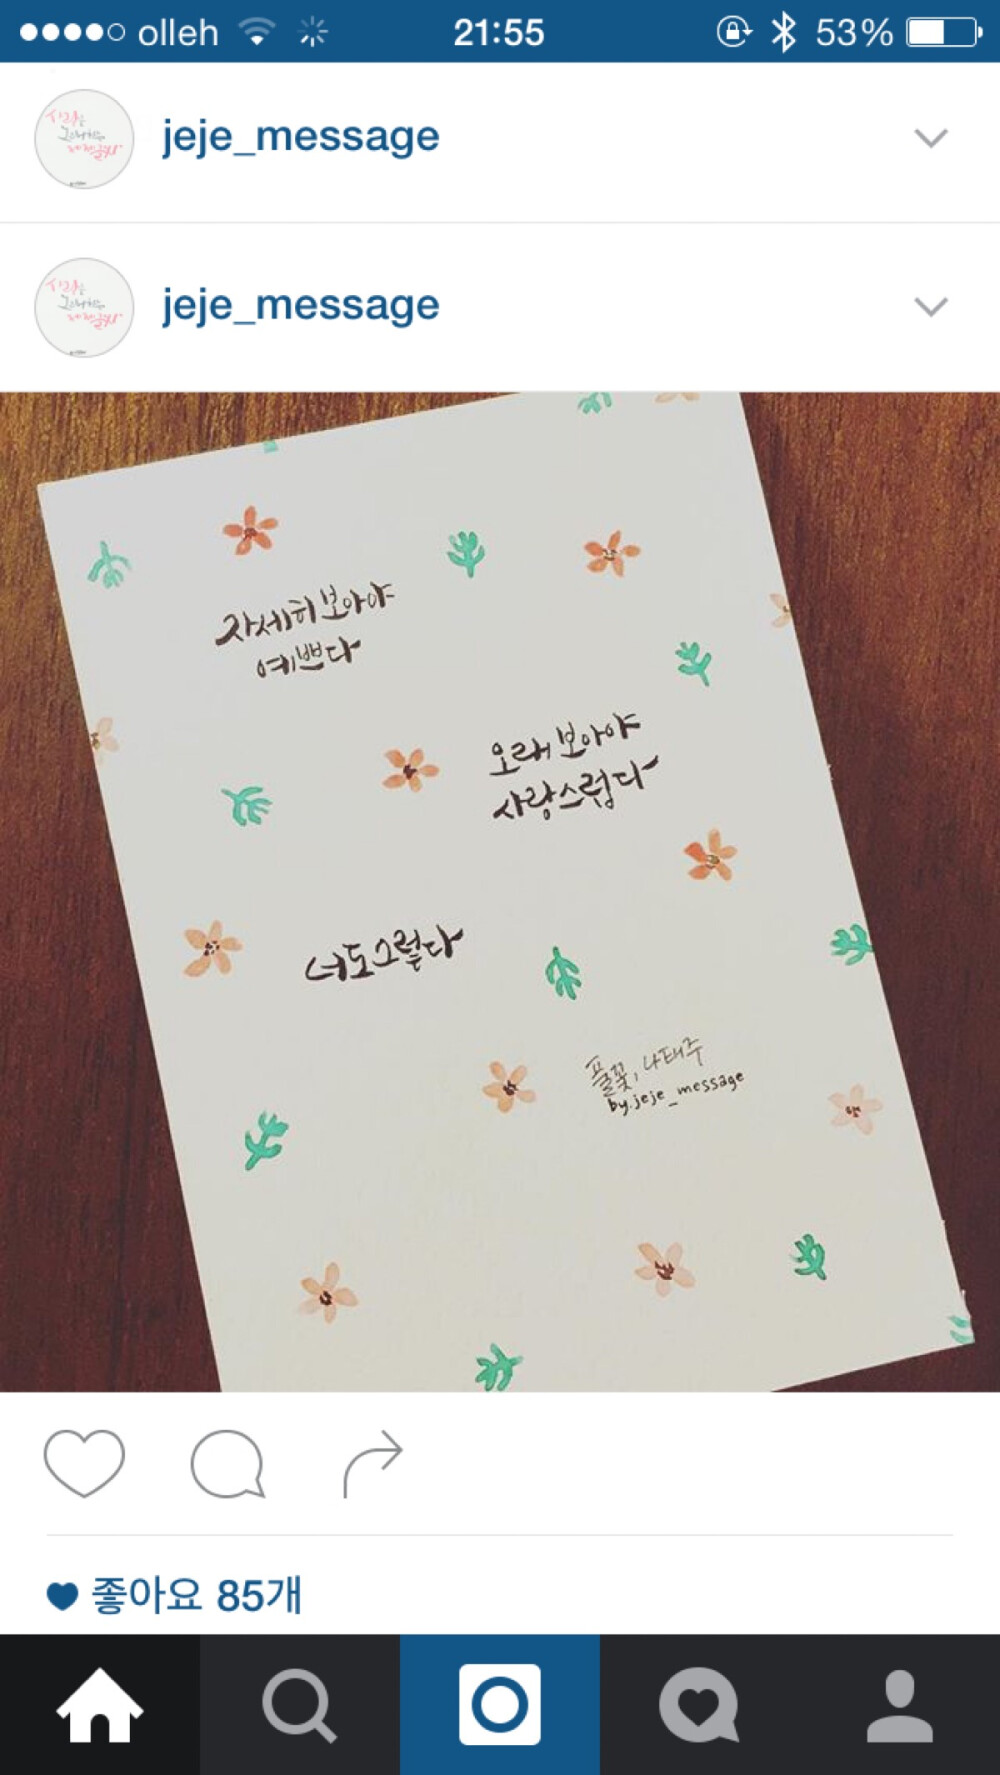 olleh 21:55 53%
jeje_message
jeje_message
자세히 보아야
예쁘다
오래 보아야
사랑스럽다
너도 그렇다
풀꽃, 나태주
by.jeje_message
좋아요 85개